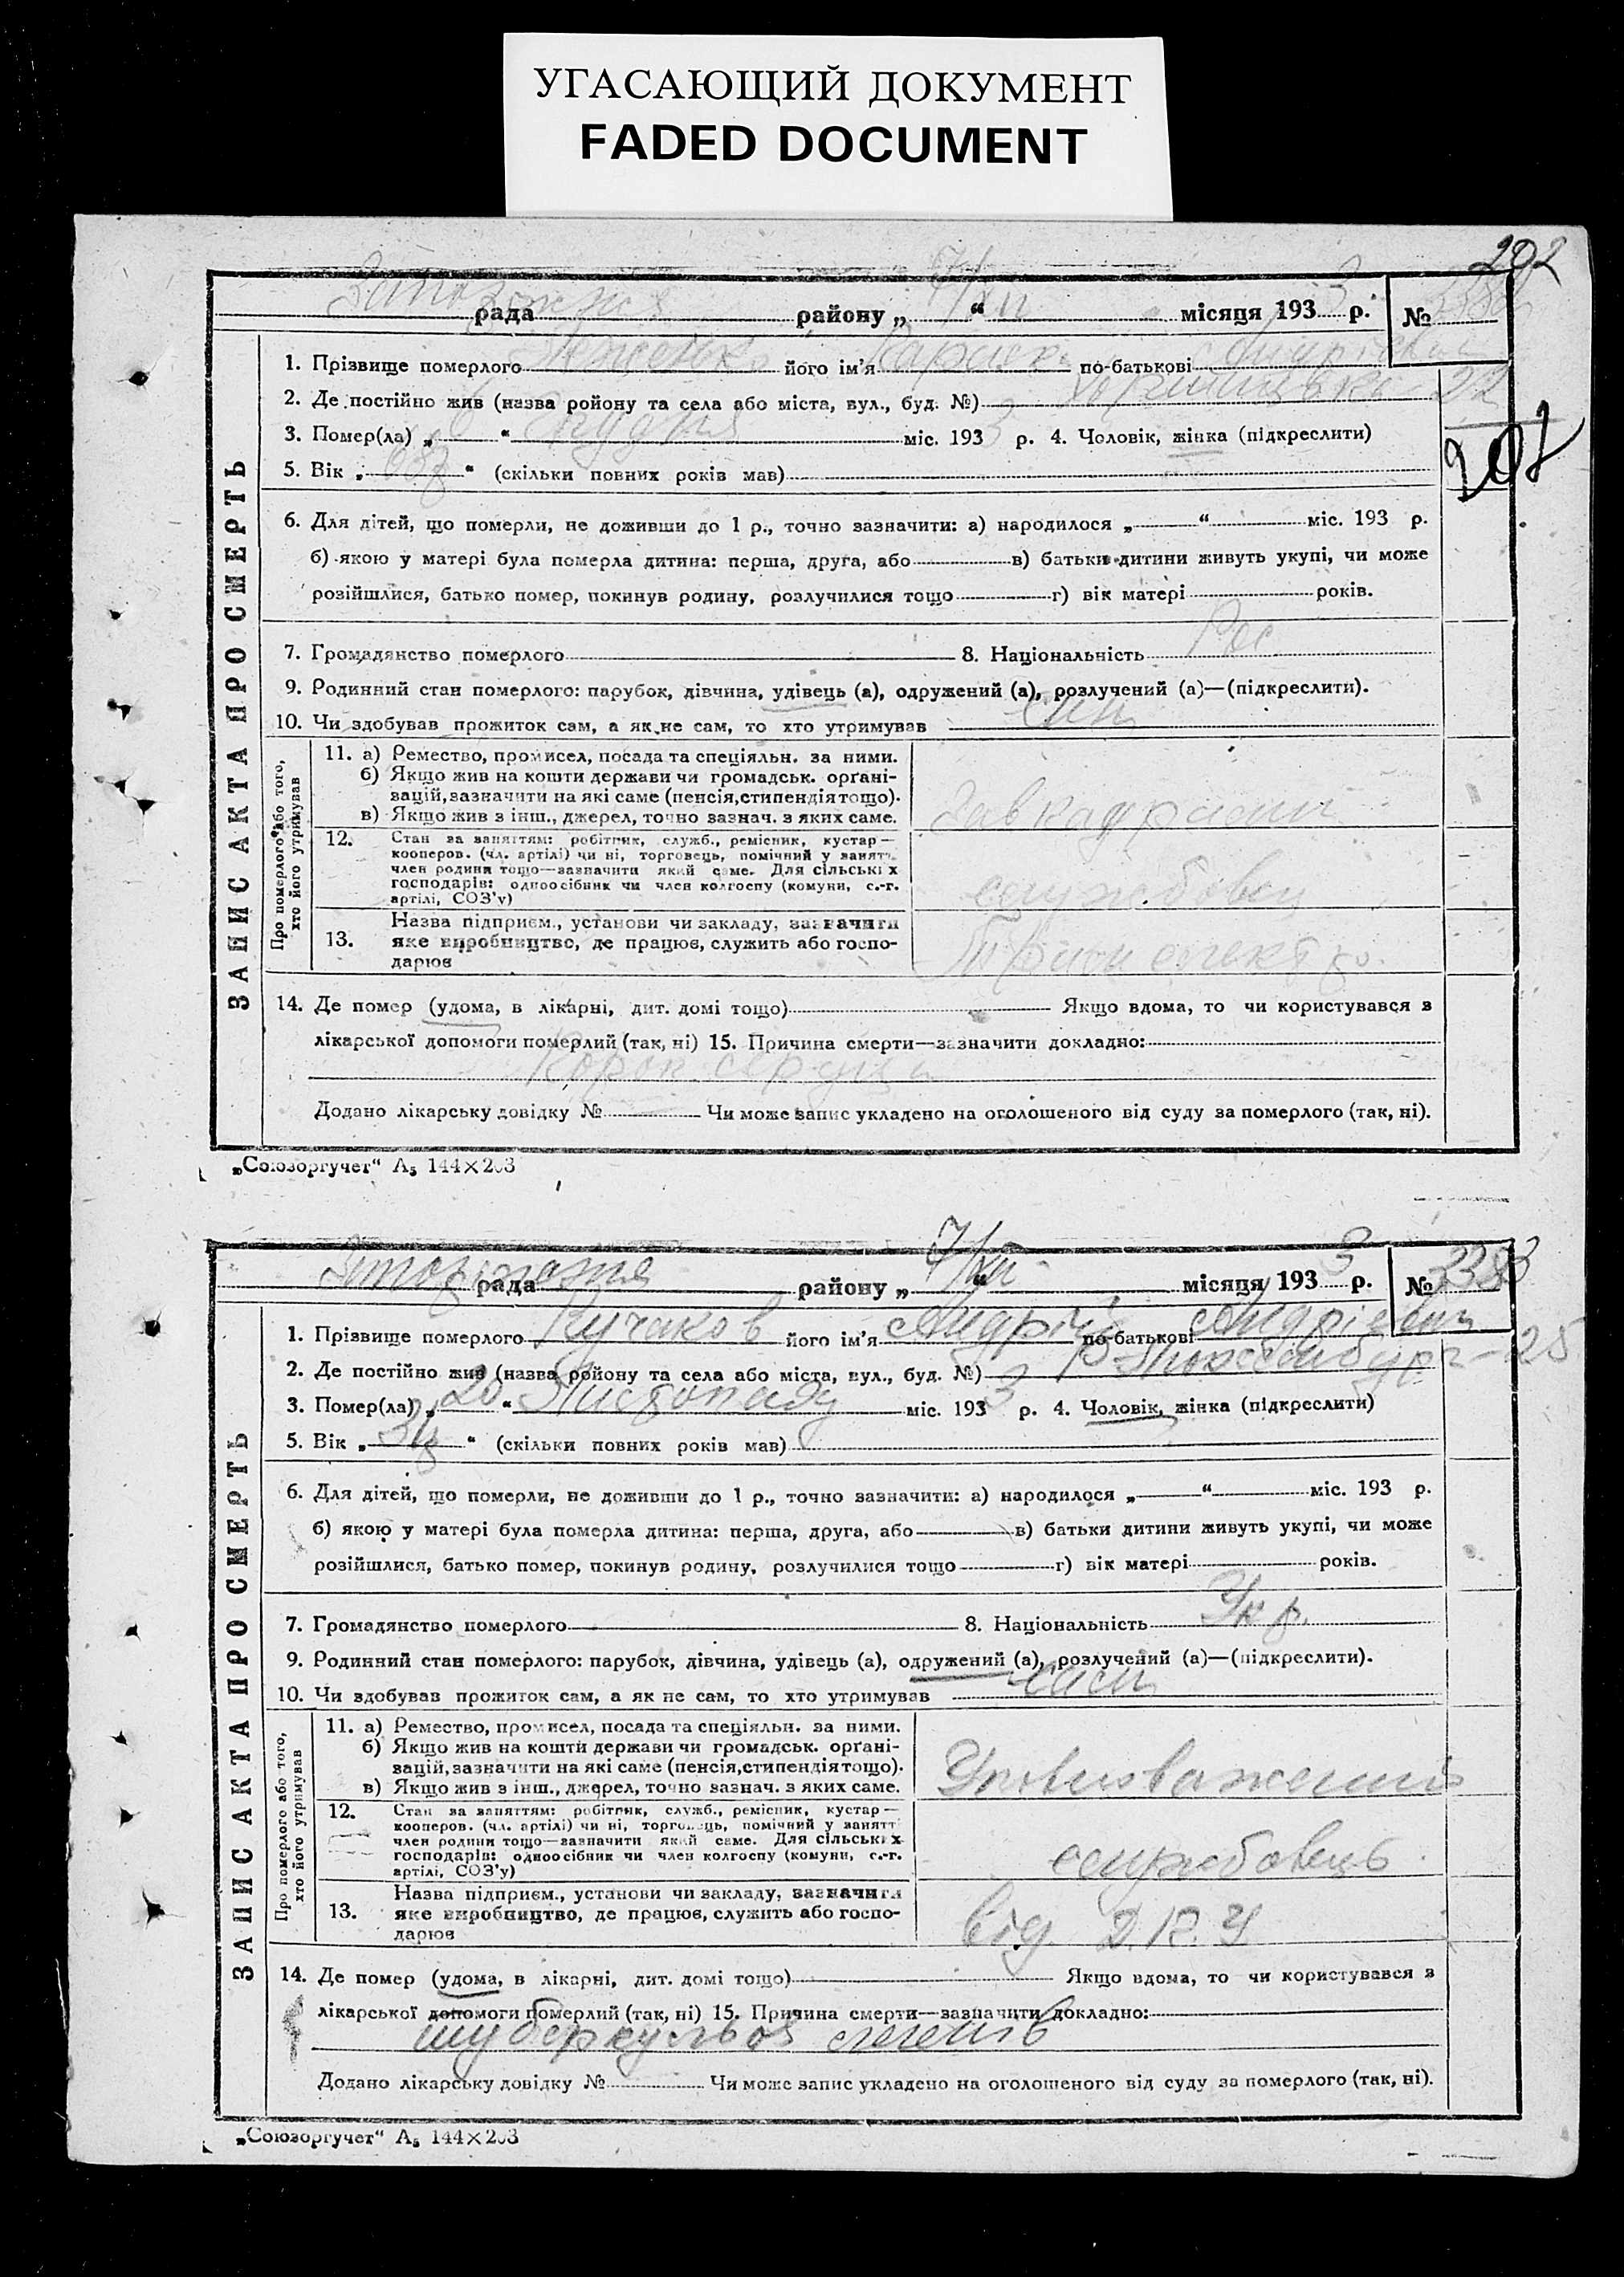 УГАСАЮЩИЙ ДОКУМЕНТ
FADED DOCUMENT
202
Запоріжжя рада району „ 7/XII “ місяця 193 3 р. №
1. Прізвище померлого його ім’я по-батькові
2. Де постійно жив (назва ройону та села або міста, вул., буд. №) 22
3. Помер(ла) „ 6 “ Грудня міс. 193 3 р. 4. Чоловік, жінка (підкреслити)
5. Вік „ “ (скільки повних років мав)
6. Для дітей, що померли, не доживши до 1 р., точно зазначити: а) народилося „ “ міс. 193 р.
б) якою у матері була померла дитина: перша, друга, або в) батьки дитини живуть укупі, чи може
розійшлися, батько помер, покинув родину, розлучилися тощо г) вік матері років.
7. Громадянство померлого 8. Національність Рос
9. Родинний стан померлого: парубок, дівчина, удівець (а), одружений (а), розлучений (а)—(підкреслити).
10. Чи здобував прожиток сам, а як не сам, то хто утримував син
ЗАПИС АКТА ПРО СМЕРТЬ
Про померлого або того,
хто його утримував
11. а) Ремество, промисел, посада та спеціяльн. за ними.
б) Якщо жив на кошти держави чи громадськ. орґані-
зацій, зазначити на які саме (пенсія, стипендія тощо).
в) Якщо жив з інш., джерел, точно зазнач. з яких саме.
Завкадрами
12. Стан за заняттям: робітник, служб., ремісник, кустар—
кооперов. (чл. артілі) чи ні, торговець, помічний у занятт
член родини тощо—зазначити який саме. Для сільських
господарів: одноосібник чи член колгоспу (комуни, с.-г.
артілі, СОЗ’у)
службовец
13. Назва підприєм., установи чи закладу, зазначити
яке виробництво, де працює, служить або госпо-
дарює
14. Де помер (удома, в лікарні, дит. домі тощо) Якщо вдома, то чи користувався з
лікарської допомоги померлий (так, ні) 15. Причина смерти—зазначити докладно:
серця
Додано лікарську довідку № Чи може запис укладено на оголошеного від суду за померлого (так, ні).
„Союзоргучет“ А5 144×203
Запоріжжя рада району „ 7/XII “ місяця 193 3 р. № 3383
1. Прізвище померлого Кучаков його ім’я Андрій по-батькові Андрієвич
2. Де постійно жив (назва ройону та села або міста, вул., буд. №) 25
3. Помер(ла) „ 20 “ Листопаду міс. 193 3 р. 4. Чоловік, жінка (підкреслити)
5. Вік „ “ (скільки повних років мав)
6. Для дітей, що померли, не доживши до 1 р., точно зазначити: а) народилося „ “ міс. 193 р.
б) якою у матері була померла дитина: перша, друга, або в) батьки дитини живуть укупі, чи може
розійшлися, батько помер, покинув родину, розлучилися тощо г) вік матері років.
7. Громадянство померлого 8. Національність Укр.
9. Родинний стан померлого: парубок, дівчина, удівець (а), одружений (а), розлучений (а)—(підкреслити).
10. Чи здобував прожиток сам, а як не сам, то хто утримував сам
ЗАПИС АКТА ПРО СМЕРТЬ
Про померлого або того,
хто його утримував
11. а) Ремество, промисел, посада та спеціяльн. за ними.
б) Якщо жив на кошти держави чи громадськ. орґані-
зацій, зазначити на які саме (пенсія, стипендія тощо).
в) Якщо жив з інш., джерел, точно зазнач. з яких саме.
12. Стан за заняттям: робітник, служб., ремісник, кустар—
кооперов. (чл. артілі) чи ні, торговець, помічний у занятт
член родини тощо—зазначити який саме. Для сільських
господарів: одноосібник чи член колгоспу (комуни, с.-г.
артілі, СОЗ’у)
службовець
13. Назва підприєм., установи чи закладу, зазначити
яке виробництво, де працює, служить або госпо-
дарює
14. Де помер (удома, в лікарні, дит. домі тощо) Якщо вдома, то чи користувався з
лікарської допомоги померлий (так, ні) 15. Причина смерти—зазначити докладно:
туберкульоз легенів
Додано лікарську довідку № Чи може запис укладено на оголошеного від суду за померлого (так, ні).
„Союзоргучет“ А5 144×203